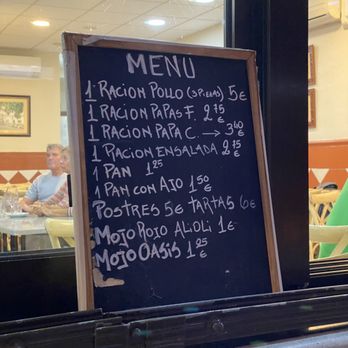 MENU
1 RACION POLLO (3 PIEZAS) 5€
1 RACION PAPAS F. 2,75 €
1 RACION PAPA C. → 3,60 €
1 RACION ENSALADA 2,75 €
1 PAN 1,25
1 PAN CON AJO 1,50 €
POSTRES 5€ TARTAS 6€
MOJO ROJO ALIOLI 1€
MOJO OASIS 1,25 €